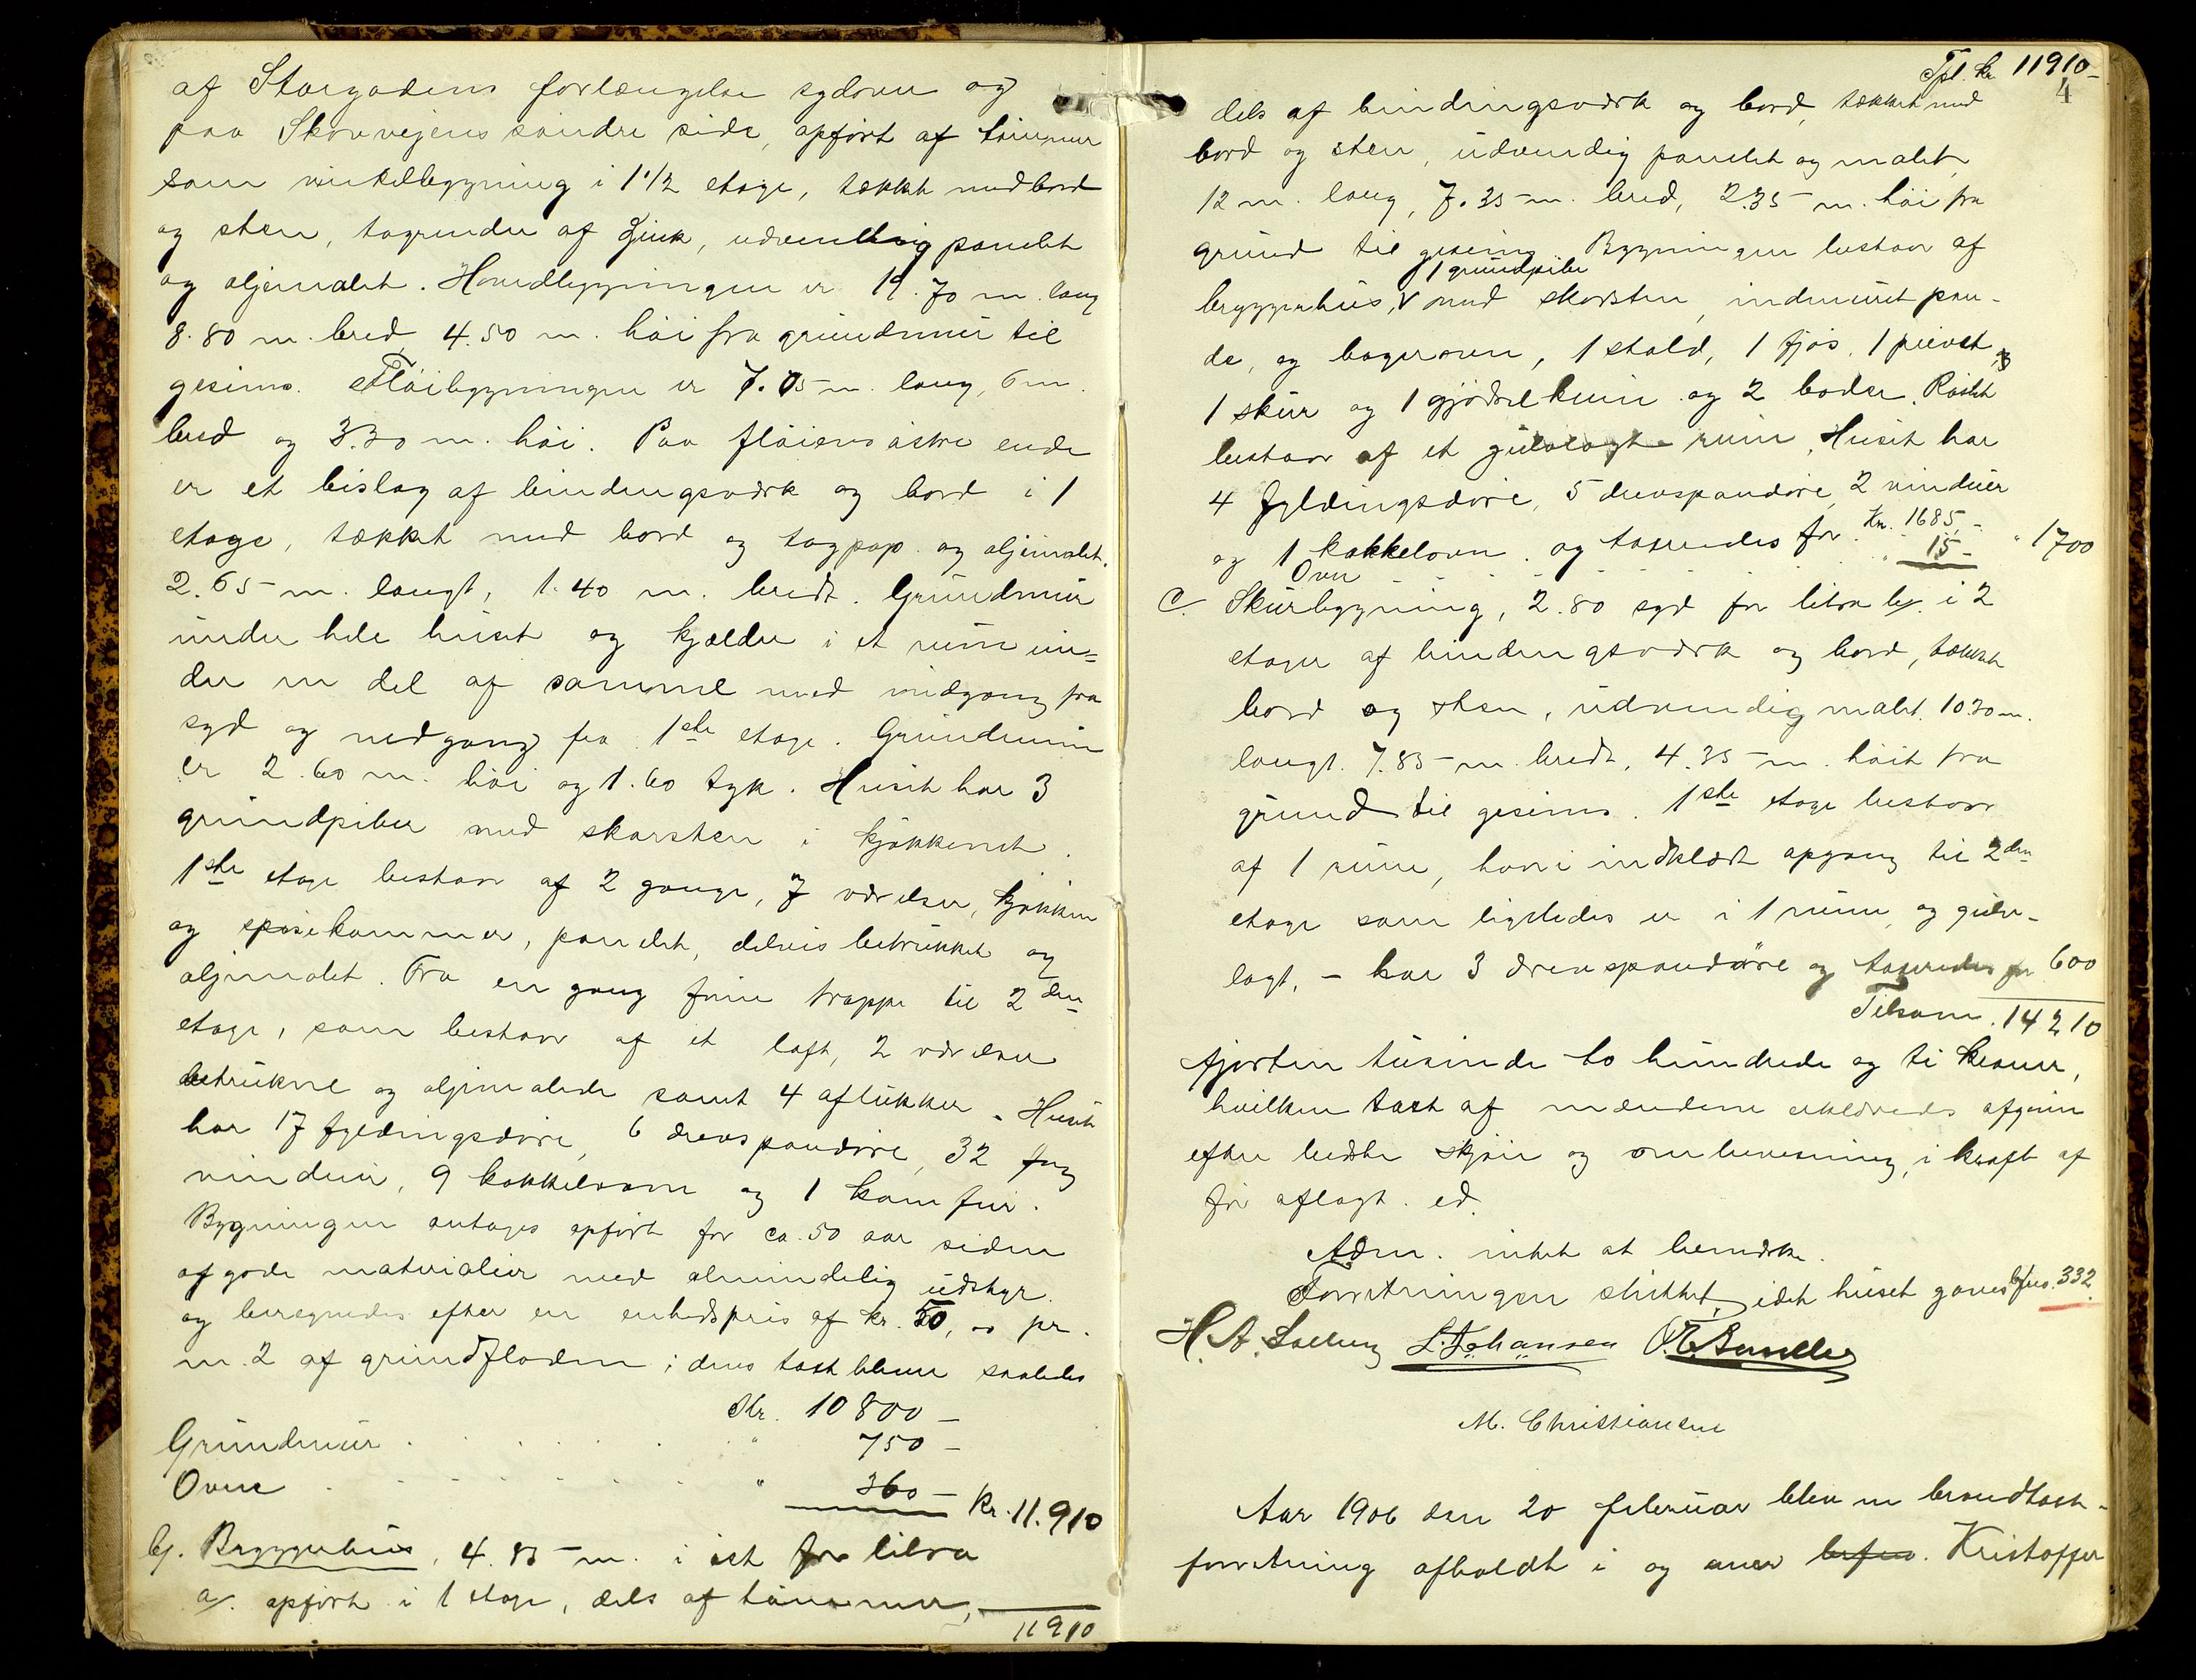 af Storgadens forlængelse sydover og
paa Skovvejens søndre side, opført af tømmer
som vinkelbygning i 1 1/2 etage, tækket med bord
og sten, tagrender af Zink, udvendig panelet
og oljemalet. Hovedbygningen er 19.70 m. lang
8.80 m. bred 4.50 m. høi fra grundmur til
gesims. Fløibygningen er 7.05 m. lang, 6 m.
bred og 3.30 m. høi. Paa fløiens østre ende
er et bislag af bindingsværk og bord i 1
etage, tækket med bord og tagpap og oljemalet.
2.65 m. langt, 1.40 m. bredt. Grundmur
under hele huset og kjælder i et rum un=
der en del af samme med indgang fra
syd og nedgang fra 1ste etage. Grundmuren
er 2.60 m. høi og 1.60 tyk. Huset har 3
grundpiber med skorsten i kjøkkenet.
1ste etage bestaar af 2 gange, 7 værelser, kjøkken
og spisekammer, panelet, delvis betrukket og
oljemalet. Fra en gang fører trappe til 2den
etage, som bestaar af et loft, 2 værelser
betrukne og oljemalede samt 4 aflukker. Huset
har 17 fyldingsdøre, 6 drevspandøre, 32 fag
vinduer, 9 kakkelovne og 1 komfur.
Bygningen antages opført for ca. 50 aar siden
af gode materialier med almindelig udstyr.
og beregnedes efter en enhedspris af kr. 50,00 pr.
m.2 af grundfladen; dens taxt bliver saaledes
Kr. 10800 –
Grundmur . . . . . " 750 –
Ovne . . . . . " 360 – Kr. 11.910
b/. Bryggerhus, 4.85 m. i øst for litra
a/. opført i 1 etage, dels af tømmer,
11910
Tpt. kr 11910 –
4
dels af bindingsværk og bord, tækket med
bord og sten, udvendig panelet og malet,
12 m. lang, 7.35 m. bred, 2.35 m. høi fra
grund til gesims. Bygningen bestaar af
1 grundpibe
bryggerhus, v med skorsten, indmuret pan-
de, og bagerovn, 1 stald, 1 fjøs, 1 privet, og
1 skur og 1 gjødselrum og 2 boder. Resten
bestaar af et gulvlagt rum. Huset har
4 fyldingsdøre, 5 drevspandøre, 2 vinduer
og 1 kakkelovn og taxeredes for Kr. 1685,-
Ovn . . . . . " 15 – " 1700
c/. Skurbygning, 2.80 syd for litra b/. i 2
etager af bindingsværk og bord, tækket
bord og sten, udvendig malet. 10.30 m.
langt. 7.85 m. bredt, 4.35 m. høit fra
grund til gesims. 1ste etage bestaar
af 1 rum, hvori indklædt opgang til 2den
etage som ligeledes er i 1 rum og gulv-
lagt, – har 3 drevspandøre og taxeredes for 600
Tilsam. 14210
fjorten tusinde to hundrede og ti kroner,
hvilken taxt af mændene erklæredes afgiven
efter bedste skjøn og overbevisning, i kraft af
før aflagt ed.
Adm. intet at bemærke.
Forretningen sluttet, idet huset gaves bfno. 332.
H. A. Solberg L. Johansen
M. Christiansen
Aar 1906 den 20 februar blev en brandtaxt-
forretning afholdt i og over Kristoffer